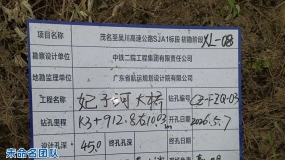 XL-08
项目名称 茂名至吴川高速公路SJA1标段 初勘阶段
勘察设计单位 中铁二院工程集团有限责任公司
地勘监理单位 广东省航运规划设计院有限公司
工程名称 大桥 钻孔编号 CZ-FZQ-03
钻孔里程 K3+912.8 开孔日期 2026.5.7
设计孔深 45.0 终孔孔深 终孔日期
未命名团队